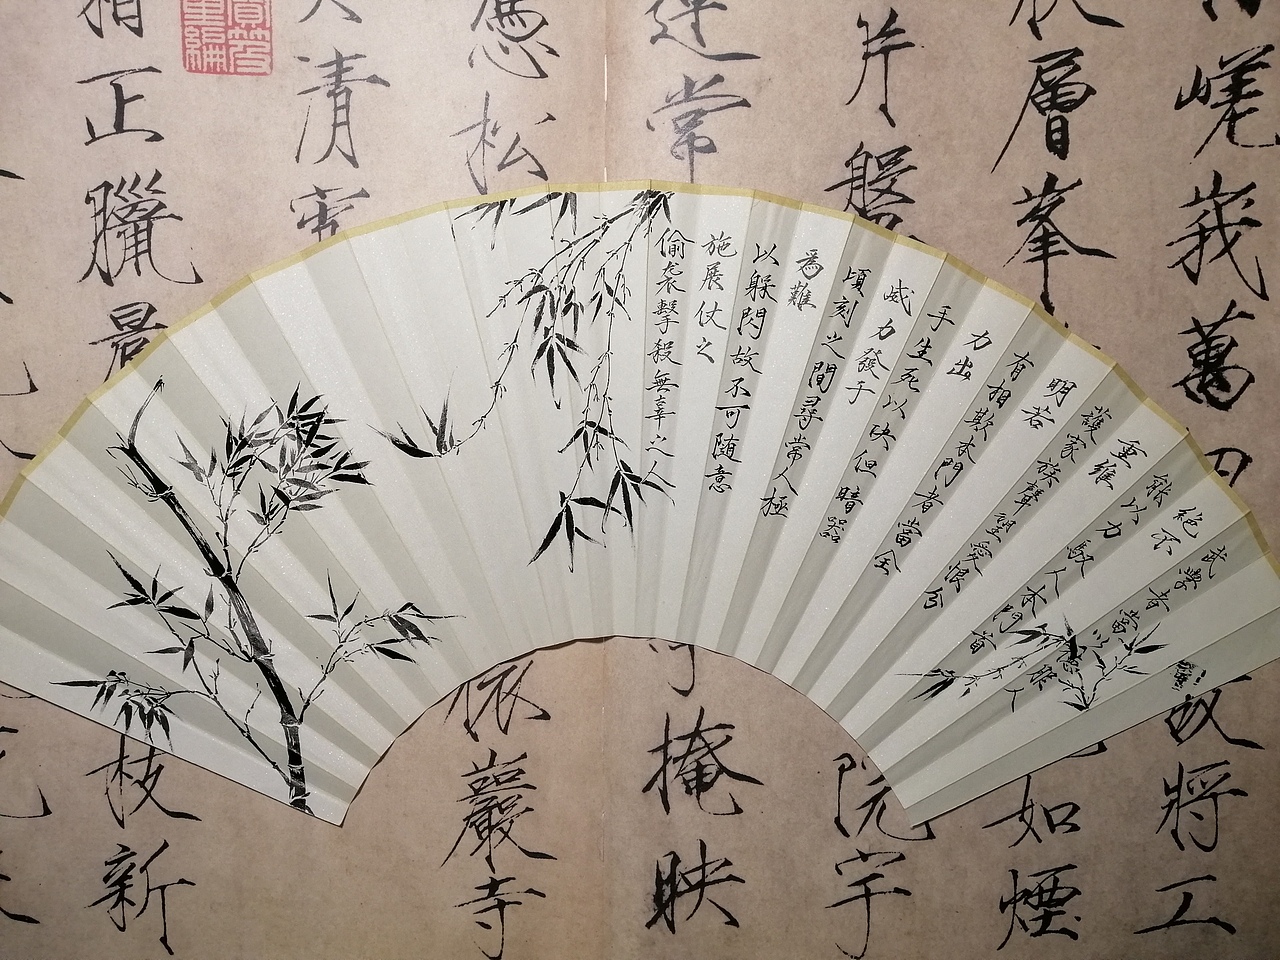 武學者當以德服人
絕不
能以力馭人本門首
重維
護家族聲望愛恨分
明若
有相欺本門者當全
力出
手生死以决但暗器
威力發于
頃刻之間尋常人極
為難
以躲閃故不可隨意
施展仗之
偷袭擊殺無辜之人
嵯峩萬
故將工
層峯
如煙
片盤
院宇
常
掩映
憑松
依巖寺
清
正臘
枝新